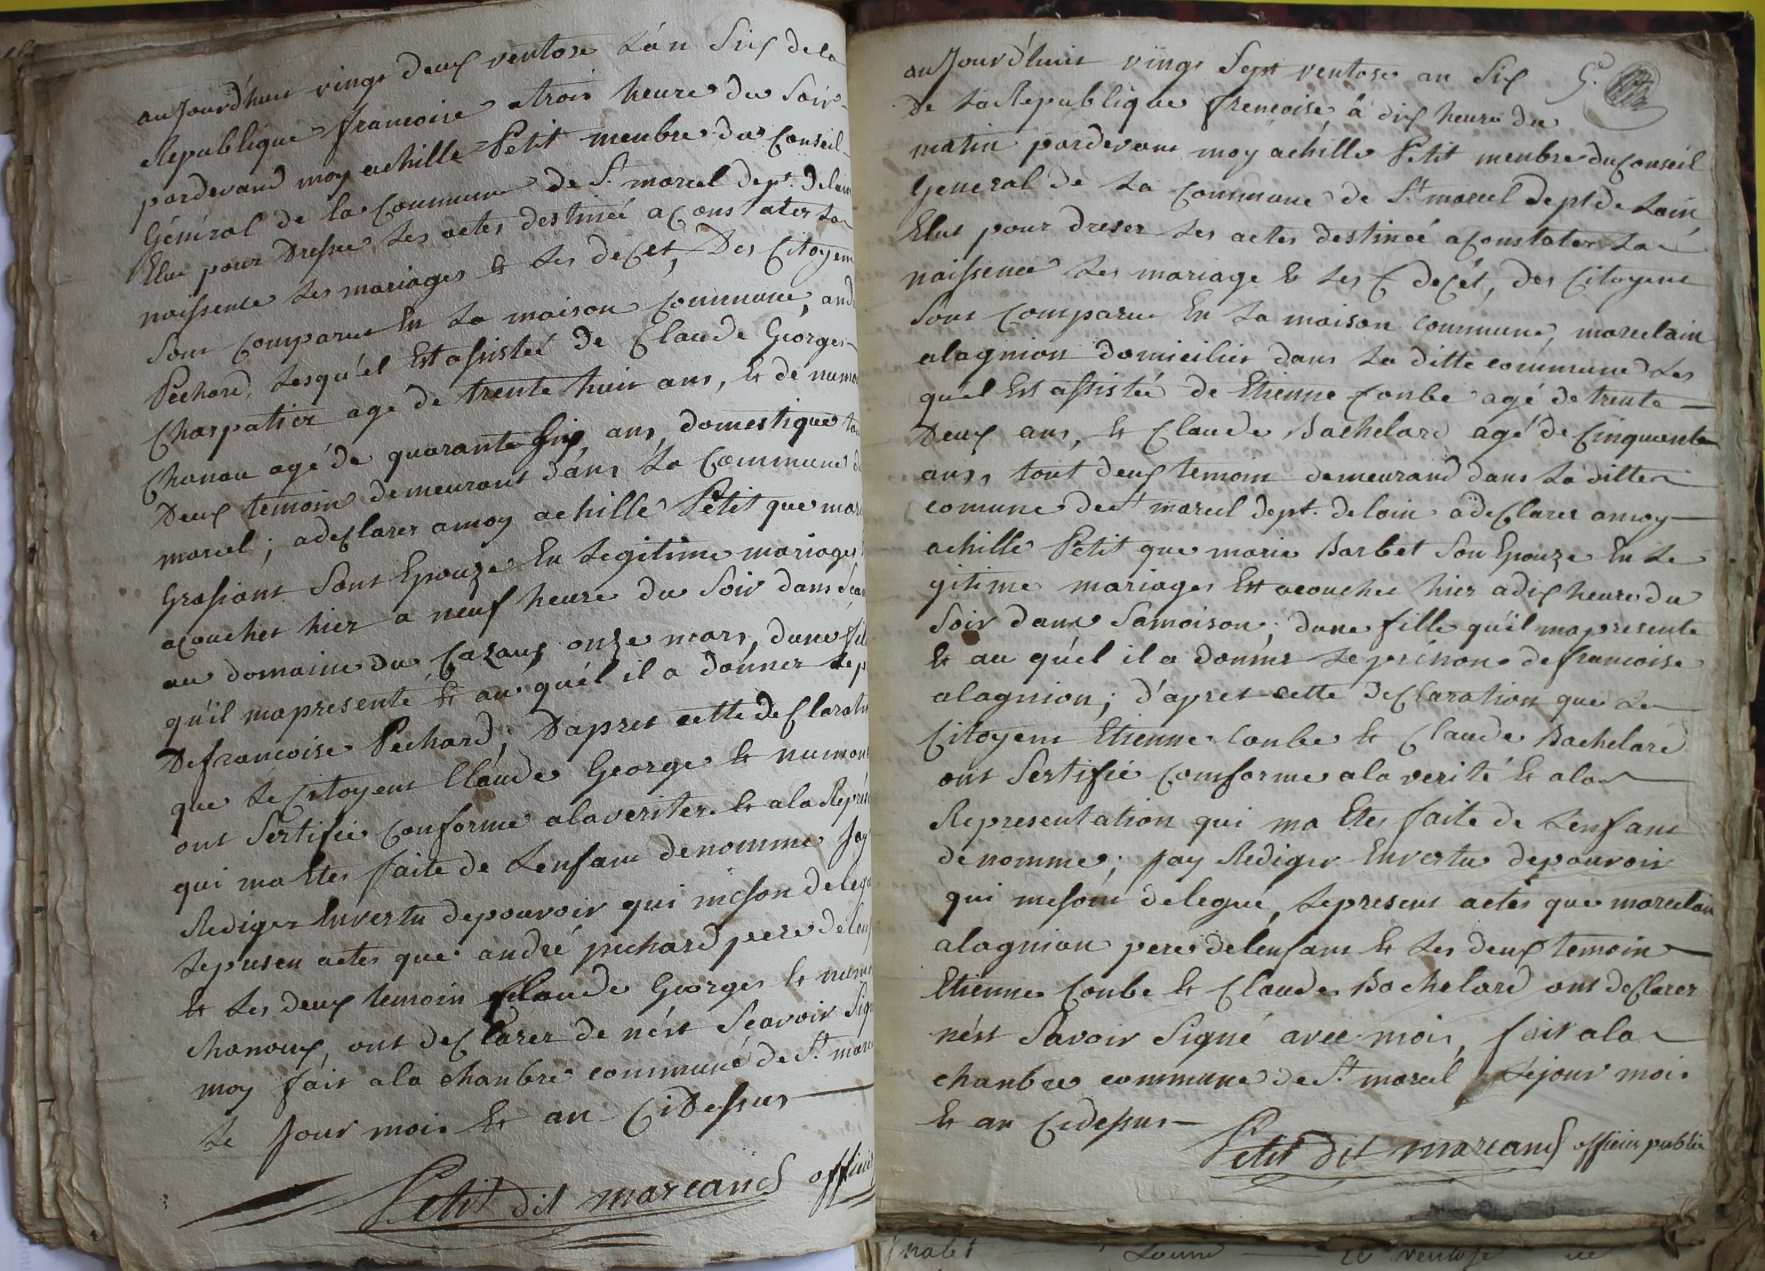 aujourd'huit vingt deux ventose L'an Six de la
Republique francoise a trois heure du Soir
pardevand moy achille Petit menbre du Conseil
Général de la Commune de St. marcel dept. delain
Elu pour Dresser Les actes destinéé a Constater La
naissence Les mariages et Les decet, Des Citoyens
Sont comparut En La maison Commune, and
Pechard, Lesqu'el Est assisteé de Claude Géorges
Charpatier age de trente huit ans, et de
Chanau agé de quarante Six ans, domestique
Deux temoin demeurant dans La Commune
marcel; adeClarer a moy achille Petit que
Grasiant Sont Epouze En Legitime mariage
acouchez hier a neuf heure du Soir dans
au domaine du Cazaux onze mars, dune
qu'il mapresenté et au qu'él il a donner Le
De francoise Pechard; Dapret cette deClarat
que Le Citoyent Claude George et
ont Sertifié Conforme ala veriter et ala
qui ma Etes faite de Lenfant denomme Jay
Rediger En vertu depouvoir qui meson
Lepresen actes que andré pechard pere
et Les deux temoin Claude Georges et
chanoux, ont deClarer de nést Scavoir
moy fait ala chanbre commune de St.
Le Jour mois et an CiDessus
Petit dit marcand
aujourd'huit vingt Sept ventose an Six 5.e
De La Republique frencoise, à dix heure du
matin pardevant moy achille Petit menbre du Conseil
General de La Commune de St. marcel dept de Lain
Elut pour dreser Les actes destineé a Constater La
naissence Les mariage et Les decét, des Citoyent
Sont Comparut En La maison Commune, marcelain
alagnion domicilier dans La ditte commune Les
quel Est assistée de Etienne Conbe agé de trente
Deux ans, et Claude Bachelard agé de Cinquante
ans, tout deux temoin demeurand dans La ditte
comune de St marcel dept. delain adeClarer amoy
achille Petit que marie Barbet Son Epouze En Le
gitime mariages Est acouchez hier adix heure du
Soir dans Samaison; dune fille qu'il mapresente
et au qu'él il a donner Leprenom defrancoise
alagnion; d'apret cette deClaration que Le
Citoyent Etienne Conbe et Claude Bachelard
ont Sertifié Comforme ala verité et ala
Representation qui ma Etes faite de Lenfant
denomme; Jay Rediger Envertu depouvoir
qui mesont delegue, Lepresent actes que marcelain
alagnion pere delenfant et Les deux temoin
Etienne Conbe et Claude Bachelard ont deClarer
nést Savoir Signé avec moi, fait ala
chanbre commune de St. marcel Lejour mois
et an Cidessus
Petit dit marcand officier public